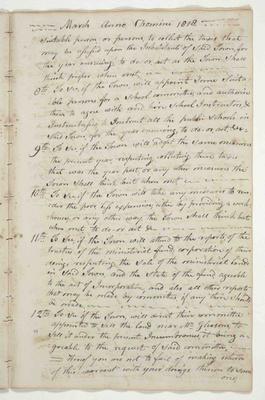 March Anno Domini 1818
Suitable person or persons, to collect the taxes that
may be assessed upon the Inhabitants of Said Town, for
the year ensuing, to do or act as the Town Shall
think proper when met
8th To See if the Town will appoint Some Suita
ble persons for a School committee, and authorise
them to agree with and hire School Instructors &
Instructresses to Instruct all the public Schools in
Said Town, for the year ensuing, to do or act &c
9th To See if the Town will adopt the Same measures
the present year respecting collecting their taxes
that was the year past or any other measures the
Town Shall think best when met
10th To See if the Town will take any measures to ren
der the poor less expensive, either by providing a work
house, or any other way the Town Shall think best
when met to do or act &c
11th To See if the Town will attend to the reports of the
trustees of the ministerial fund, corporation of their
doings respecting the Sale of the ministerial lands
in Said Town, and the State of the fund agreeable
to the act of Incorporation, and also all other reports
that may be made by committees if any there Should
be made
12th To See if the Town will assist their committee
appointed to Sell the land near Mr Gleason, to
Sell it under the present Incumbrances, it being a
greable to the request of Said committee
Hereof you are not to fail of making return
of this warrant with your doings thereon to Some
one